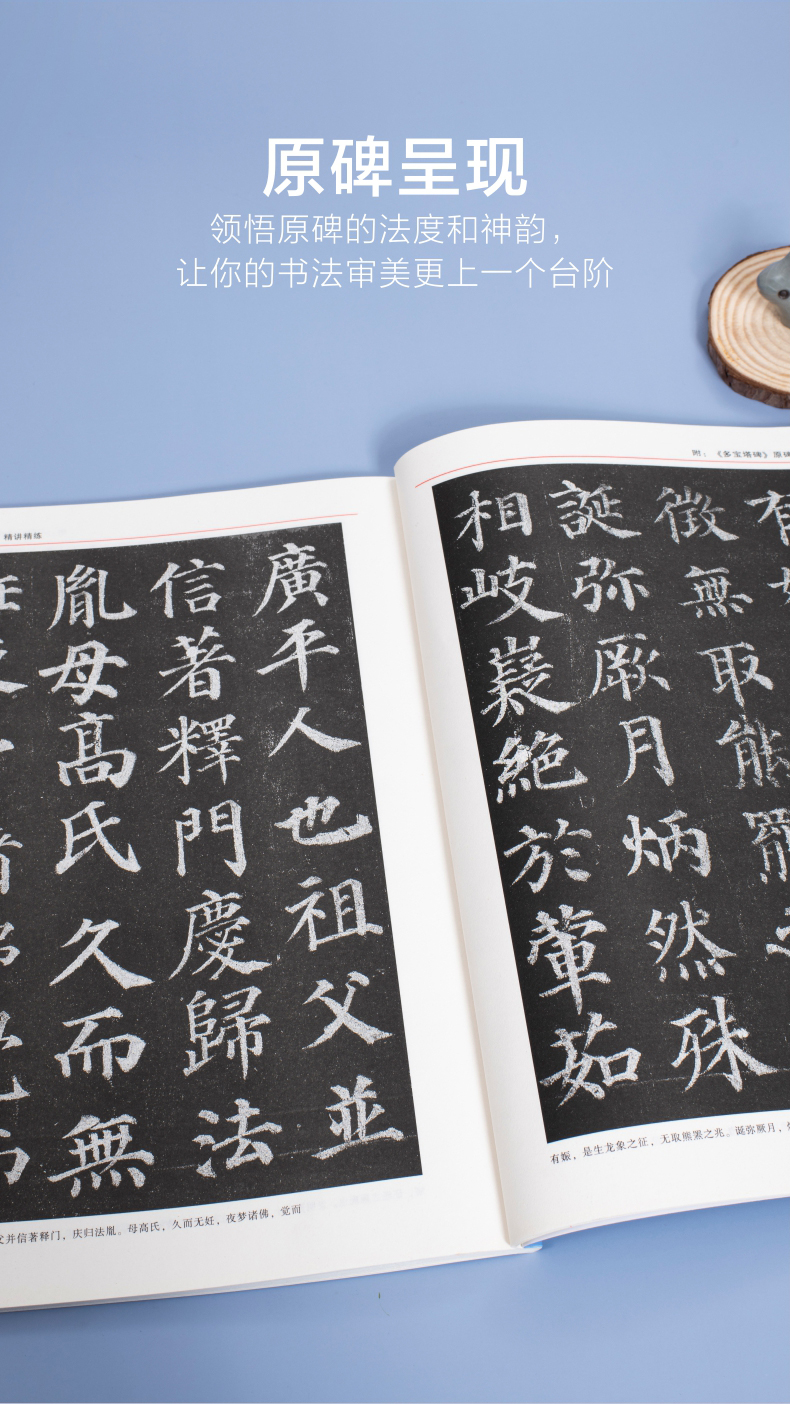 原碑呈现
领悟原碑的法度和神韵，
让你的书法审美更上一个台阶
精讲精练
廣平人也祖父並
信著釋門慶歸法
胤母髙氏久而無
父并信著释门，庆归法胤。母高氏，久而无妊，夜梦诸佛，觉而
附：《多宝塔碑》原碑
有
徵無取熊
誕弥厥月炳然殊
相岐嶷絕於葷茹
有娠，是生龙象之征，无取熊罴之兆。诞弥厥月，